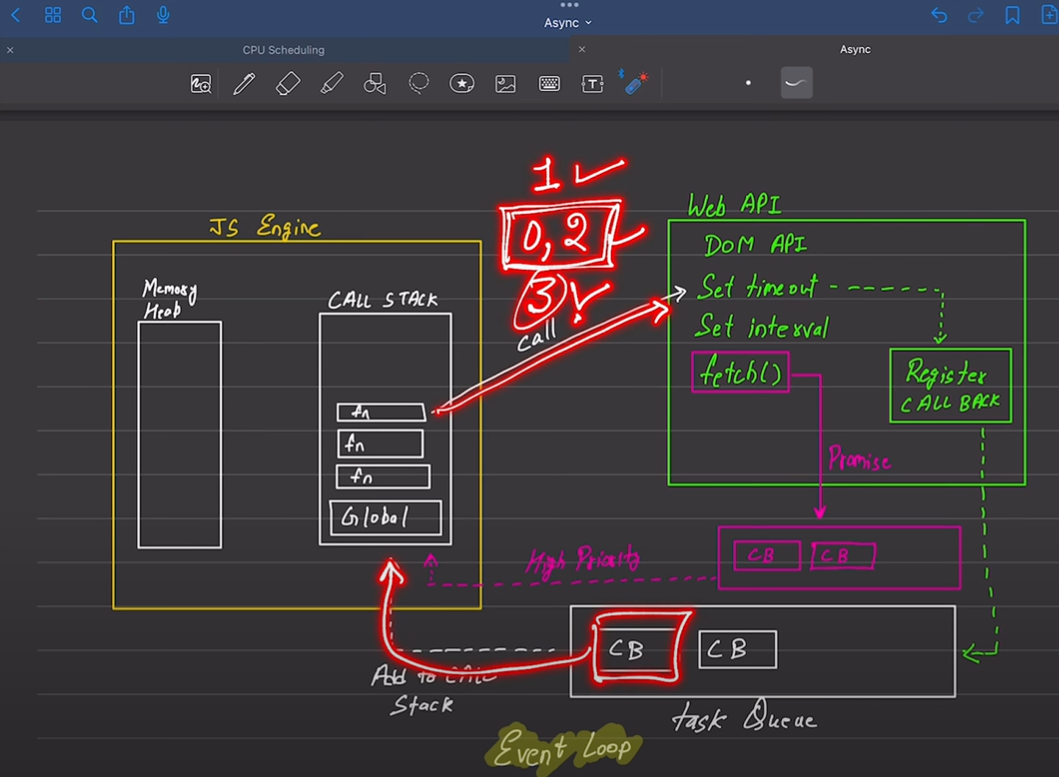 Async
CPU Scheduling
Async
T
1
0, 2
3
JS Engine
Memory
Heap
CALL STACK
fn
fn
fn
Global
call
Web API
DOM API
Set timeout
Set interval
fetch()
Register
CALL BACK
Promise
CB
CB
High Priority
CB
CB
Add to CALL
Stack
task Queue
Event Loop